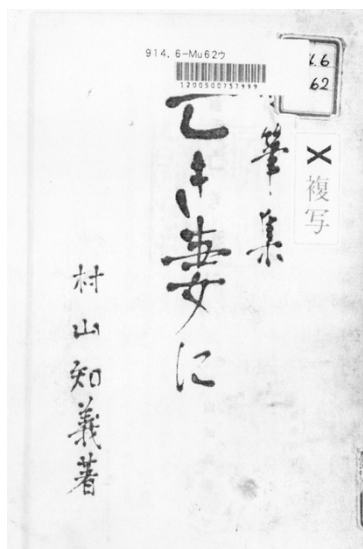 914.6-Mu62ウ
1200500757999
6
62
複写
筆集
亡き妻に
村山知義著